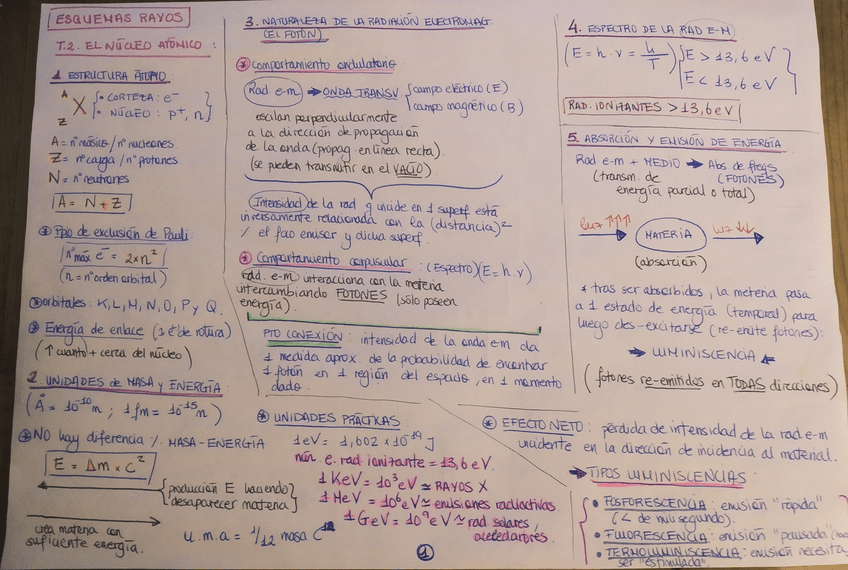 ESQUEMAS RAYOS
T.2. EL NÚCLEO ATÓMICO:
1. ESTRUCTURA ÁTOMO
A
X
Z
• CORTEZA: e⁻
• NÚCLEO: p⁺, n
A = nº másico / nº nucleones
Z = nº carga / nº protones
N = nº neutrones
A = N + Z
Ppo de exclusión de Pauli:
nº máx e⁻ = 2 x n²
(n = nº orden orbital)
orbitales: K, L, M, N, O, P y Q.
Energía de enlace (1 e⁻ de rotura)
(↑ cuanto + cerca del núcleo)
2. UNIDADES de MASA y ENERGÍA
(Å = 10⁻¹⁰ m ; 1 fm = 10⁻¹⁵ m)
NO hay diferencia %. MASA-ENERGÍA
E = Δm x c²
producción E haciendo
desaparecer materia
crea materia con
suficiente energía.
u.m.a = 1/12 masa C¹²
3. NATURALEZA DE LA RADIACIÓN ELECTROMAG.
(EL FOTÓN)
Comportamiento ondulatorio
Rad. e-m → ONDA TRANSV
campo eléctrico (E)
campo magnético (B)
oscilan perpendicularmente
a la dirección de propagación
de la onda (propag. en línea recta).
(se pueden transmitir en el VACÍO).
Intensidad de la rad q incide en 1 superf está
inversamente relacionada con la (distancia)²
% el foco emisor y dicha superf.
Comportamiento corpuscular: (Espectro) (E = h.ν)
rad. e-m interacciona con la materia
intercambiando FOTONES (sólo poseen
energía).
PTO CONEXIÓN: intensidad de la onda e-m da
1 medida aprox. de la probabilidad de encontrar
1 fotón en 1 región del espacio, en 1 momento
dado.
UNIDADES PRÁCTICAS:
1eV = 1,602 x 10⁻¹⁹ J
mín. e. rad ionizante = 13,6 eV.
1 KeV = 10³ eV ≃ RAYOS X
1 MeV = 10⁶ eV ≃ emisiones radiactivas
1 GeV = 10⁹ eV ≃ rad. solares
aceleradores.
1
4. ESPECTRO DE LA RAD E-M
(E = h . ν = h/T)
E > 13,6 eV
E < 13,6 eV
RAD. IONIZANTES > 13,6 eV
5. ABSORCIÓN Y EMISIÓN DE ENERGÍA
Rad e-m + MEDIO → Abs. de
(transm. de (FOTONES)
energía parcial o total)
luz ↑↑↑ MATERIA luz ↓↓
(absorción)
* tras ser absorbidos, la materia pasa
a 1 estado de energía (temporal) para
luego des-excitarse (re-emite fotones):
→ LUMINISCENCIA ←
(fotones re-emitidos en TODAS direcciones)
EFECTO NETO: pérdida de intensidad de la rad e-m
incidente en la dirección de incidencia al material.
→ TIPOS LUMINISCENCIAS:
• FOSFORESCENCIA: emisión "rápida"
(< de milisegundo).
• FLUORESCENCIA: emisión "pausada"
• TERMOLUMINISCENCIA: emisión necesita
ser "estimulada".